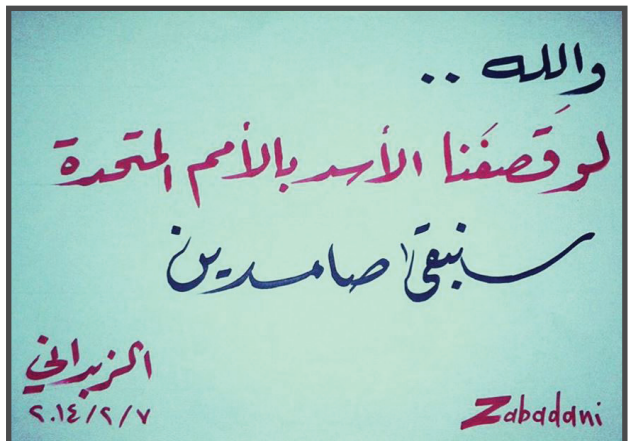 والله ..
لو قَصفَنا الأسد بالأمم المتحدة
سنبقى صامدين
الزبداني
٢٠١٤/٢/٧
Zabadani